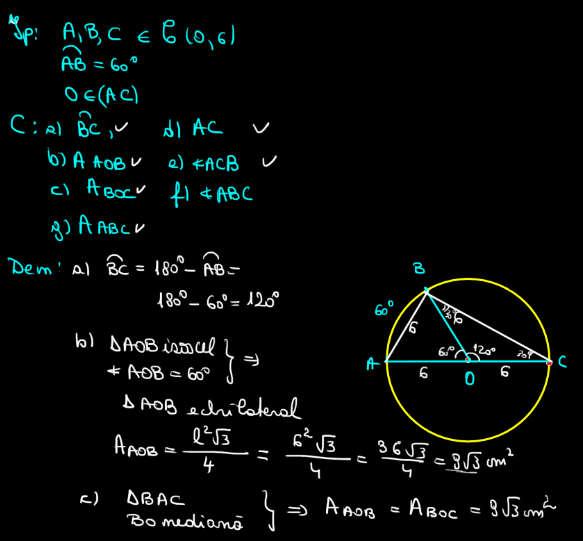 Ip: A, B, C ∈ C(O, 6)
AB = 60°
O ∈ (AC)
C: a) BC, ✓ d) AC ✓
b) A AOB ✓ e) ∢ACB ✓
c) A BOC ✓ f) ∢ABC
g) A ABC ✓
Dem: a) BC = 180° - AB =
180° - 60° = 120°
b) ΔAOB isoscel
∢AOB = 60° } ⇒
ΔAOB echilateral
A AOB = l²√3/4 = 6²√3/4 = 36√3/4 = 9√3 cm²
c) ΔBAC
BO mediană } ⇒ A AOB = A BOC = 9√3 cm²
B
60°
6
6
60° 120°
A
C
6
O
6